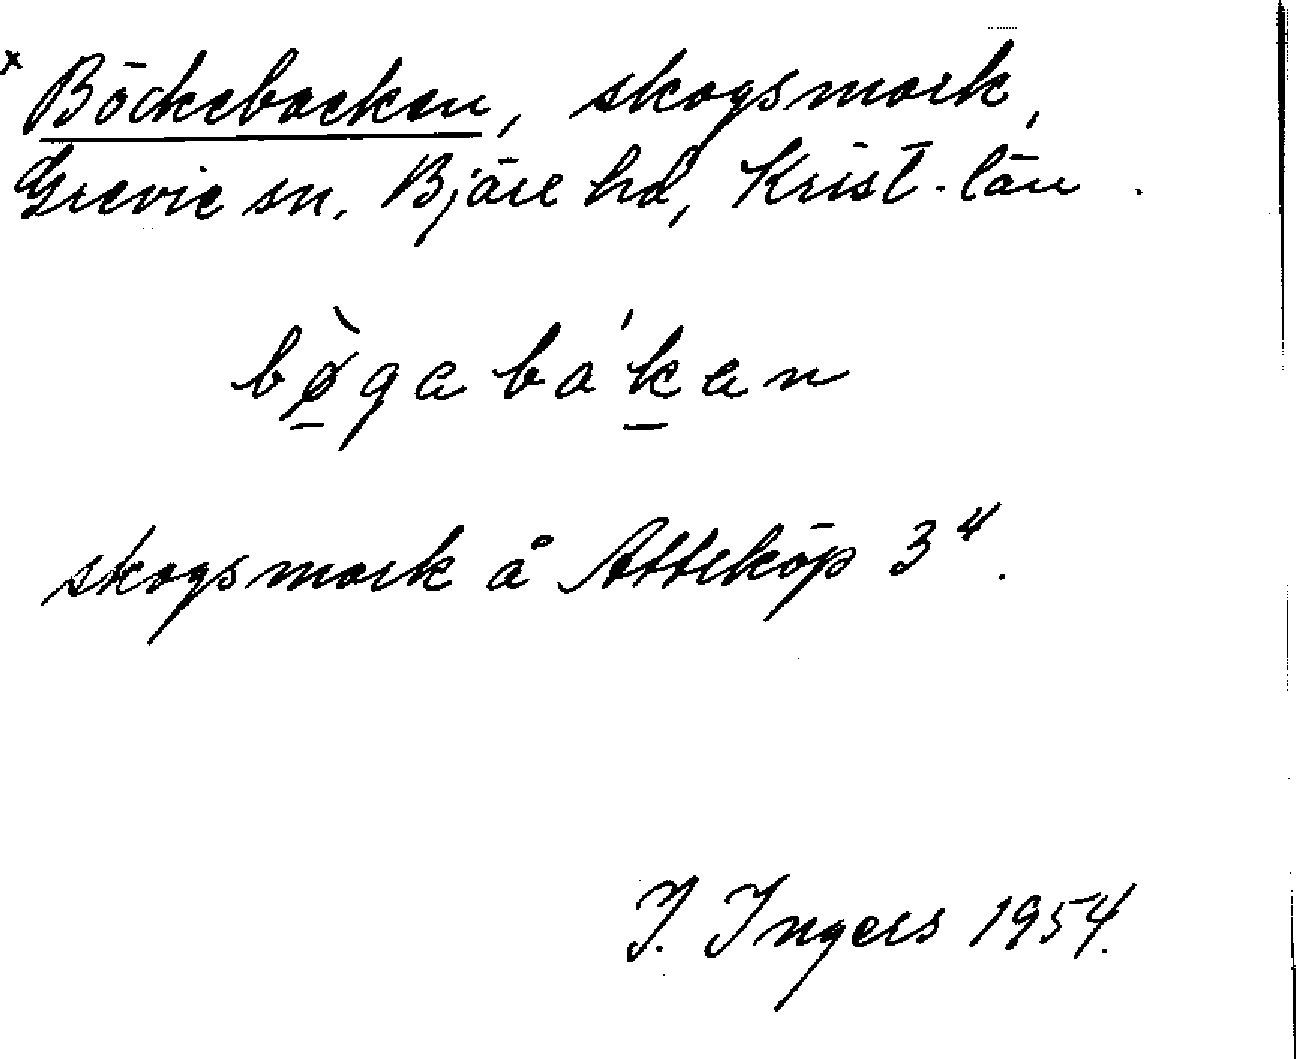 x Böckebacken, skogsmark,
Grevie sn. Bjäre hd, Krist. län.
bø̠̀gabá k̠an
skogsmark å Atteköp 3⁴.
I. Ingers 1954.